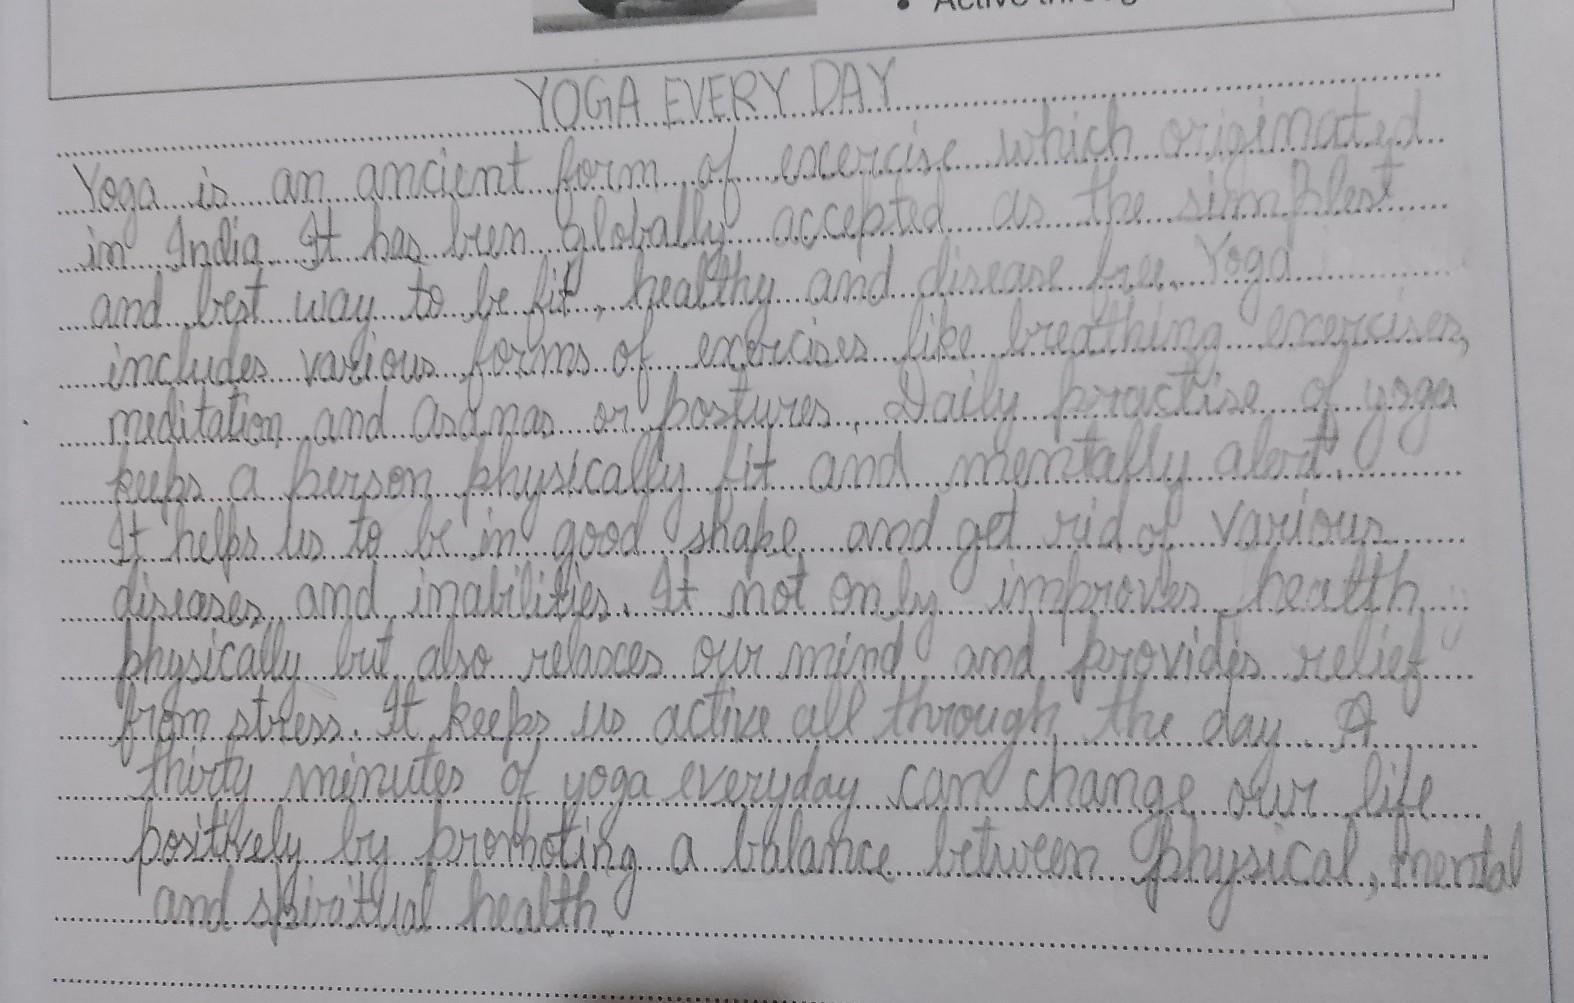 • Active throug
YOGA EVERY DAY
Yoga is an ancient form of excercise which originated
in India. It has been globally accepted as the simplest
and best way to be fit, healthy and disease free. Yoga
includes various forms of exercises like breathing exercises,
meditation and asanas or postures. Daily practise of yoga
keeps a person physically fit and mentally alert.
It helps us to be in good shape and get rid of various
diseases and inabilities. It not only improves health
physically but also relaxes our mind and provides relief
from stress. It keeps us active all through the day. A
thirty minutes of yoga everyday can change our life
positively by promoting a balance between physical, mental
and spiritual health.